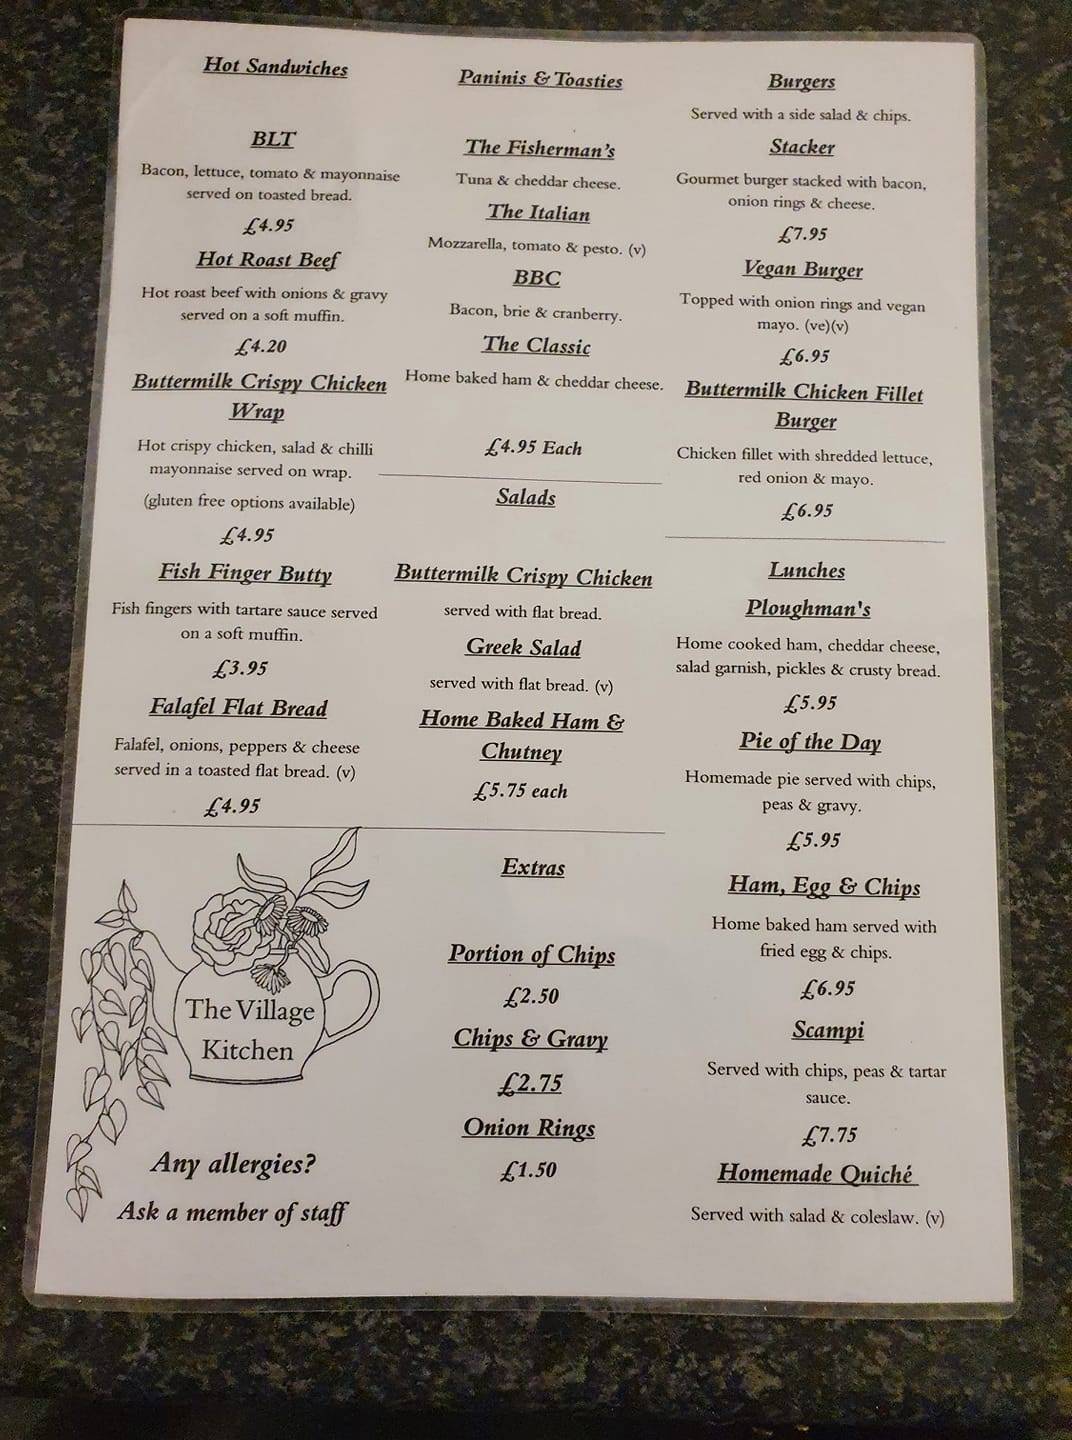 Hot Sandwiches
BLT
Bacon, lettuce, tomato & mayonnaise
served on toasted bread.
£4.95
Hot Roast Beef
Hot roast beef with onions & gravy
served on a soft muffin.
£4.20
Buttermilk Crispy Chicken
Wrap
Hot crispy chicken, salad & chilli
mayonnaise served on wrap.
(gluten free options available)
£4.95
Fish Finger Butty
Fish fingers with tartare sauce served
on a soft muffin.
£3.95
Falafel Flat Bread
Falafel, onions, peppers & cheese
served in a toasted flat bread. (v)
£4.95
The Village
Kitchen
Any allergies?
Ask a member of staff
Paninis & Toasties
The Fisherman's
Tuna & cheddar cheese.
The Italian
Mozzarella, tomato & pesto. (v)
BBC
Bacon, brie & cranberry.
The Classic
Home baked ham & cheddar cheese.
£4.95 Each
Salads
Buttermilk Crispy Chicken
served with flat bread.
Greek Salad
served with flat bread. (v)
Home Baked Ham &
Chutney
£5.75 each
Extras
Portion of Chips
£2.50
Chips & Gravy
£2.75
Onion Rings
£1.50
Burgers
Served with a side salad & chips.
Stacker
Gourmet burger stacked with bacon,
onion rings & cheese.
£7.95
Vegan Burger
Topped with onion rings and vegan
mayo. (ve)(v)
£6.95
Buttermilk Chicken Fillet
Burger
Chicken fillet with shredded lettuce,
red onion & mayo.
£6.95
Lunches
Ploughman's
Home cooked ham, cheddar cheese,
salad garnish, pickles & crusty bread.
£5.95
Pie of the Day
Homemade pie served with chips,
peas & gravy.
£5.95
Ham, Egg & Chips
Home baked ham served with
fried egg & chips.
£6.95
Scampi
Served with chips, peas & tartar
sauce.
£7.75
Homemade Quiché
Served with salad & coleslaw. (v)